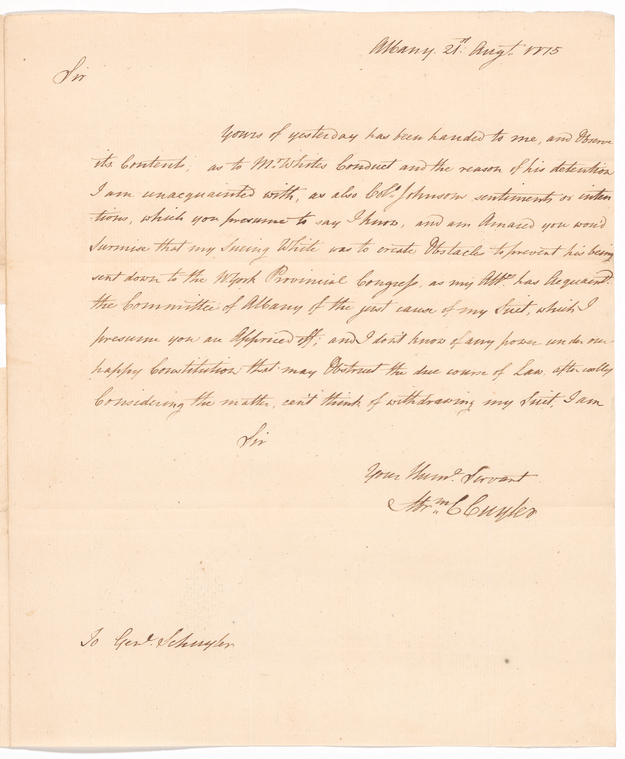 Albany 21st Augt. 1775
Sir
Yours of yesterday has been handed to me, and Observe
its Contents; as to Mr. Whites Conduct and the reason of his detention
I am unacquainted with, as also Col. Johnsons sentiments or inten
tions, which you presume to say I know, and am Amazed you woud
Surmise that my Sueing White was to create Obstacles to prevent his being
sent down to the NYork Provincial Congress, as my Atty. has Acquaintd.
the Committee of Albany of the just cause of my Suit, which I
presume you are Apprised off; and I dont know of any power under our
happy Constitution that may Obstruct the due course of Law. after cooly
Considering the matter, cant think of withdrawing my Suit, I am
Sir
Your Huml. Servant
Abrm. C Cuyler
To Genl. Schuyler